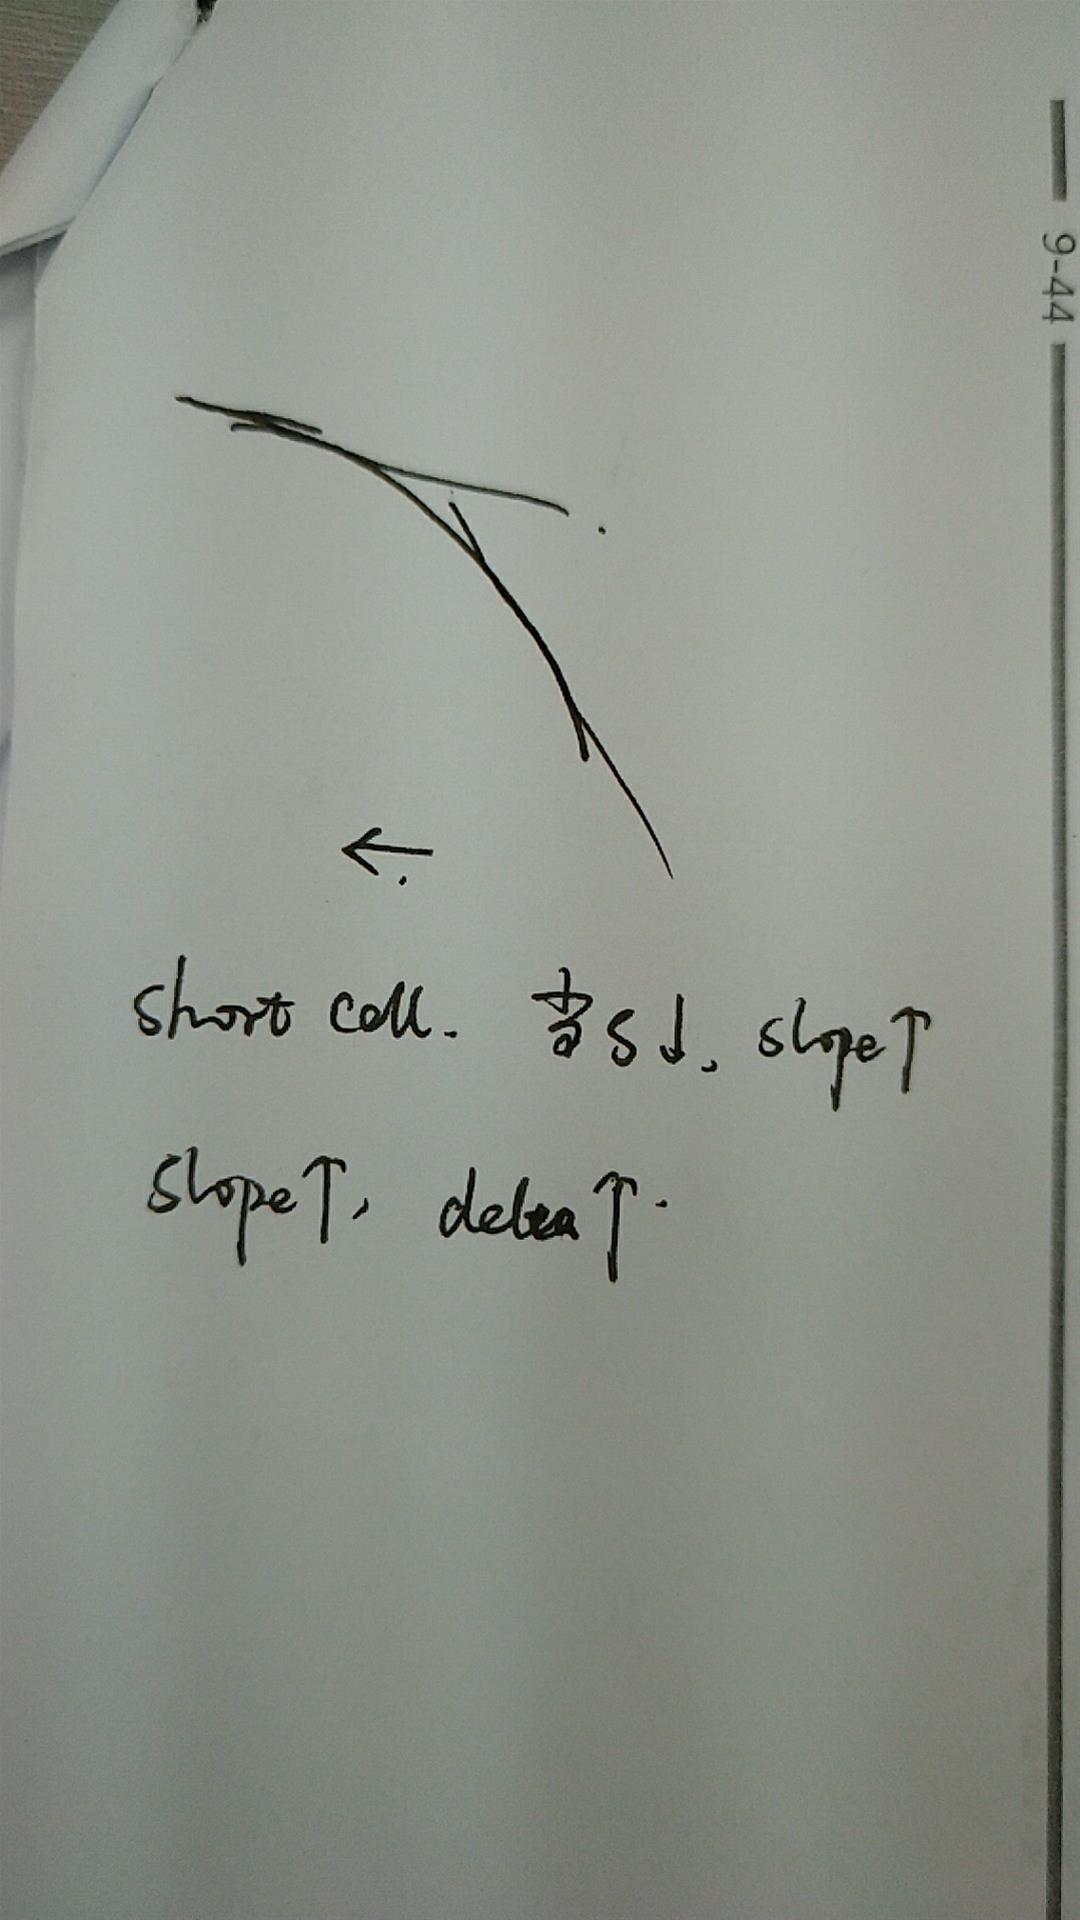 9-44
short call. 当S↓, slope↑
slope↑, delta↑.